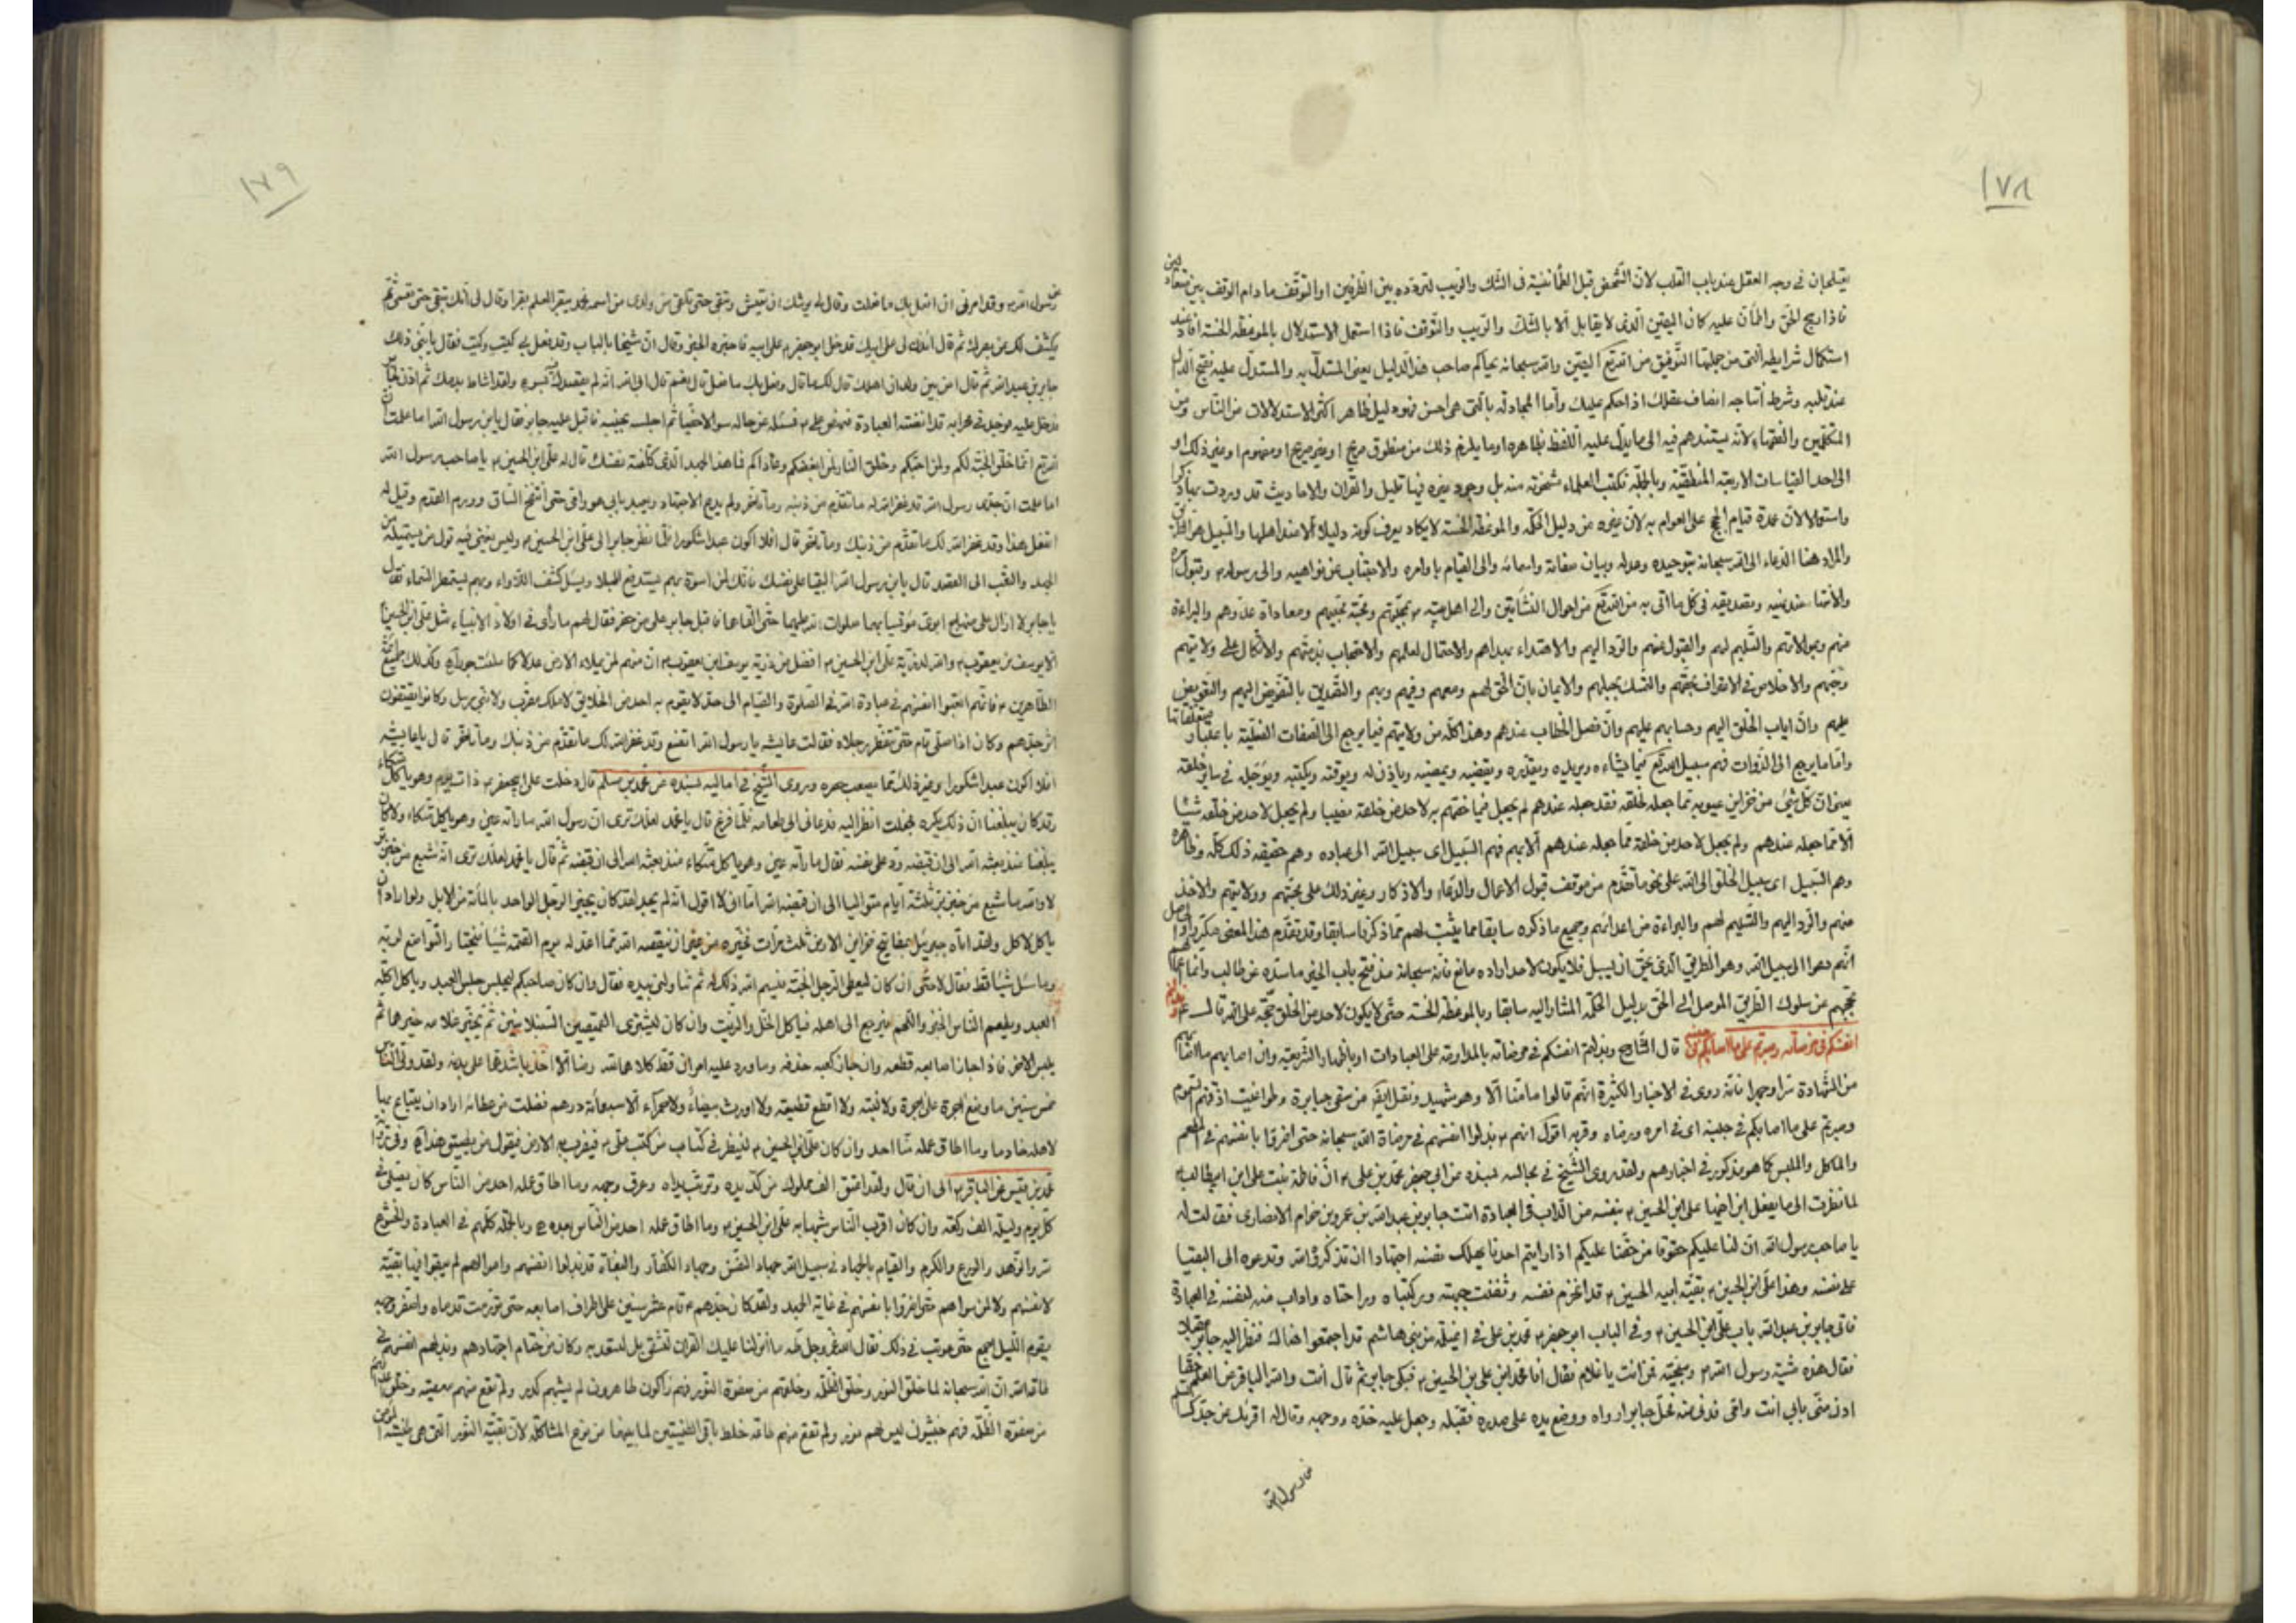 ١٧٨
يقلبان في وجه العقل عند باب القلب لان الشخص قبل الطمأنينة في الشك والريب لتردده بين الطرفين او التوقف ما دام الوقف بين
فاذا رجح الحق واطمأن عليه كان اليقين الذى لا يقابل الا بالشك والريب والتوقف فاذا استعمل الاستدلال بالموعظة الحسنة افاد عند
استكمال شرايطه التى من جملتها التوفيق من الله تع اليقين والله سبحانه يحاكم صاحب هذا الدليل يعنى المستدل به والمستدل عليه
عند قلبه وشرط انتاجه انصاف عقلك اذا حكم عليك وأما المجادلة بالتى هى احسن فهو دليل ظاهر اكثر الاستدلالات من الناس ومن
المتكلمين والفقهاء لانه يستندهم فيه الى ما يدل عليه اللفظ بظاهره او ما يلزم ذلك من منطوق صريح او غير صريح او مفهوم او غير ذلك او
الى احد القياسات الاربعة المنطقية وبالجملة فكتب العلماء مشحونة منه بل وجود غيره فيها قليل والقران والاحاديث قد وردت
واستعمالا لان عمدة قيام الحجج على العوام به لان غيره من دليل الحكمة والموعظة الحسنة لا يكاد يعرف كونه دليلا الا عند اهلها والسبيل هو
والمراد هنا الدعاء الى الله سبحانه بتوحيده وعدله وبيان صفاته واسمائه والى القيام باوامره والاجتناب عن نواهيه والى رسوله وقبول
عند نهيه وتصديقه في كل ما اتى به من الله تع من احوال النشأتين والى اهل بيته بمحبتهم ومحبة محبيهم ومعاداة عدوهم والبراءة
منهم وبموالاتهم والتسليم لهم والقبول عنهم والرد اليهم والاهتداء بهداهم والاحتمال لعلمهم والاحتجاب بذمتهم والاتكال على ولايتهم
وحبهم والاخلاص في الاعتراف بحقهم والتمسك بحبلهم والايمان بان الحق لهم ومعهم وفيهم وبهم والتصديق بالتفويض اليهم والتعويض
عليهم وان اياب الخلق اليهم وحسابهم عليهم وان فصل الخطاب عندهم وهذا كله من ولايتهم فيما يرجع الى الصفات الفعلية باعتبار متعلقاتها
واما ما يرجع الى الذوات فهم سبيل الله تع فيما يشاءه ويريده ويقدره ويقضيه ويمضيه وياذن له ويوقته ويكتبه ويؤجله في ساير خلقه
بمعنى ان كل شئ من خزاين غيوبه مما جعله لخلقه فقد جعله عندهم لم يجعل فيما اختصهم به لاحد من خلقه نصيبا ولم يجعل لاحد من خلقه شيئا
الا مما جعله عندهم ولم يجعل لاحد من خلقه مما جعله عندهم الا بهم فهم السبيل اى سبيل الله الى عباده وهم حقيقة ذلك كله
وهم السبيل اى سبيل الخلق الى الله على نحو ما تقدم من توقف قبول الاعمال والدعاء والاذكار وغير ذلك على محبتهم وولايتهم والاخذ
منهم والرد اليهم والتسليم لهم والبراءة من اعدائهم وجميع ما ذكره سابقا مما يثبت لهم مما ذكرنا سابقا وقد تقدم هذا المعنى مكررا والحاصل
انهم دعوا الى سبيل الله وهو الطريق الذى يحق ان يسبل فلا يكون لاحد اراده مانع فانه سبحانه منذ فتح باب الخير ما سده عن طالب وانما
حجبهم عن سلوك الطريق الموصل الى الحق بدليل الحكمة المشار اليه سابقا وبالموعظة الحسنة حتى لا يكون لاحد من الخلق حجة على الله قال ع وبذلتم
انفسكم في مرضاته وصبرتم على ما اصابكم في جنبه قال الشارح وبذلتم انفسكم في مرضاته بالمداومة على العبادات او باظهار الشريعة وان اصابهم ما اصابهم
من الشهادة سرا وجهرا فانه روى في الاخبار الكثيرة انهم قالوا ما منا الا وهو شهيد ونقل انه من بقى جبابرة وطواغيت
وصبرتم على ما اصابكم في جنبه اى في امره ورضاه وقربه اقول انهم بذلوا انفسهم في مرضاة الله سبحانه حتى اضروا بانفسهم في المطعم
والماكل والملبس كما هو مذكور في اخبارهم ولقد روى الشيخ في مجالسه بسنده عن ابى جعفر محمد بن على ان فاطمة بنت على ابن ابيطالب
لما نظرت الى ما يفعل ابن اخيها على ابن الحسين بنفسه من الدأب في العبادة اتت جابر بن عبدالله بن عمرو بن حزام الانصارى فقالت له
يا صاحب رسول الله ان لنا عليكم حقوقا من حقنا عليكم اذا رايتم احدنا يهلك نفسه اجتهادا ان تذكروه الله وتدعوه الى البقيا
على نفسه وهذا على ابن الحسين بقية ابيه الحسين قد انخرم نفسه وثفنت جبهته وركبتاه وراحتاه واداب منه لنفسه في العبادة
فاتى جابر بن عبدالله باب على ابن الحسين وفى الباب ابو جعفر محمد بن على في اغيلمة من بنى هاشم قد اجتمعوا هناك فنظر اليه جابر مقبلا
فقال هذه مشية رسول الله وسجيته فمن انت يا غلام فقال انا محمد ابن على بن الحسين فبكى جابر ثم قال انت والله الباقر عن العلم حقا
ادن منى بابى انت وامى فدنى منه فحل جابر ازراره ووضع يده على صدره فقبله وجعل عليه خده ووجهه وقال له اقرئك عن جدك
عن رسول الله
١٧٩
عن رسول الله وقد امرنى ان افعل بك ما فعلت وقال لى يوشك ان تعيش وتبقى حتى تلقى من ولدى من اسمه محمد يبقر العلم بقرا وقال لى انك تبقى حتى تعمى ثم
يكشف لك عن بصرك ثم قال ائذن لى على ابيك فدخل ابو جعفر على ابيه فاخبره الخبر وقال ان شيخا بالباب وقد فعل بى كيت وكيت فقال يا بنى ذلك
جابر بن عبدالله ثم قال امن بين ولدان اهلك قال لك ما قال وفعل بك ما فعل قال نعم قال انا لله انه لم يقصدك فيه بسوء ولقد اشاط بدمك ثم اذن لجابر
فدخل عليه فوجده في محرابه قد انضته العبادة فنهض على فسئله عن حاله سؤالا حفيا ثم اجلسه بجنبه فاقبل عليه جابر فقال يابن رسول الله اما علمت ان
الله تع انما خلق الجنة لكم ولمن احبكم وخلق النار لمن ابغضكم وعاداكم فما هذا الجهد الذى كلفته نفسك قال له على ابن الحسين يا صاحب رسول الله
اما علمت ان جدى رسول الله قد غفر الله له ما تقدم من ذنبه وما تاخر ولم يدع الاجتهاد وتعبد بابى هو وامى حتى انتفخ الساق وورم القدم وقيل له
اتفعل هذا وقد غفر الله لك ما تقدم من ذنبك وما تاخر قال افلا اكون عبدا شكورا فلما نظر جابر الى على ابن الحسين وليس يغنى فيه قول من يستميله من
الجهد والتعب الى القصد قال يابن رسول الله البقيا على نفسك فانك لمن اسوة بهم يستدفع البلاء ويسئل كشف اللأواء وبهم يستمطر السماء فقال
يا جابر لا ازال على منهاج ابوى مؤتسيا بهما صلوات الله عليهما حتى القاهما فاقبل جابر على من حضر فقال لهم ما رأى في اولاد الانبياء مثل على ابن الحسين
الا يوسف بن يعقوب والله لذرية على ابن الحسين افضل من ذرية يوسف ابن يعقوب ان منهم لمن يملاء الارض عدلا كما ملئت جورا وكذلك
الطاهرين فانهم اتعبوا انفسهم في عبادة الله في الصلوة والصيام الى حد لا يقوم به احد من الخلايق لا ملك مقرب ولا نبى مرسل وكانوا يقتفون
اثر جدهم وكان اذا صلى قام حتى تفطر رجلاه فقالت عايشه يا رسول الله اتصنع وقد غفر الله لك ما تقدم من ذنبك وما تاخر قال يا عايشه
افلا اكون عبدا شكورا وغير ذلك مما يصعب حصره وروى الشيخ في اماليه بسنده عن محمد بن مسلم قال دخلت على ابيجعفر ذات يوم وهو ياكل متكاء
وقد كان يبلغنا ان ذلك يكره فجعلت انظر اليه فدعانى الى طعامه فلما فرغ قال يا محمد لعلك ترى ان رسول الله ما راته عين وهو ياكل متكاء
منذ بعثه الله الى ان قبضه رد على نفسه فقال ما رأته عين وهو ياكل متكاء منذ بعثه الله الى ان قبضه ثم قال يا محمد لعلك ترى انه شبع من خبز بر
لا والله ما شبع من خبز بر ثلثة ايام متواليا الى ان قبضه الله اما انى لا اقول انه لم يجد لقد كان يجيز الرجل الواحد بالمأة من الابل ولو اراد ان
ياكل لاكل ولقد اتاه جبرئيل بمفاتيح خزاين الارض ثلث مرات فخيره من غير ان ينقصه الله مما اعد له يوم القيمة شيئا فيختار التواضع لربه
وما سئل شيئا قط فقال لا حتى ان كان ليعطى الرجل الجنة فيسلم الله ذلك له ثم تناولنى بيده فقال وان كان صاحبكم ليجلس جلس العبد وياكل اكلة
العبد ويطعم الناس الخبز واللحم ويرجع الى اهله فياكل الخل والزيت وان كان ليشترى القميصين السنبلانيين ثم يخير غلامه خيرهما ثم
يلبس الاخر فاذا جاز اصابعه قطعه وان جاز كعبه حذفه وما ورد عليه امران قط كلاهما لله رضا الا اخذ باشدهما على بدنه ولقد ولى الناس
خمس سنين ما وضع اجرة على اجرة ولا لبنة ولا اقطع قطيعة ولا اورث بيضاء ولا حمراء الا سبعمأة درهم فضلت من عطائه اراد ان يبتاع بها
لاهله خادما وما اطاق عمله منا احد وان كان على ابن الحسين لينظر في كتاب من كتب على فيضرب به الارض فيقول من يطيق هذا
محمد بن قيس عن الباقر الى ان قال ولقد اعتق الف مملوك من كد يده وتربت يداه وعرق وجهه وما اطاق عمله احد من الناس كان يصلى في
كل يوم وليلة الف ركعة وان كان اقرب الناس شبها به على ابن الحسين وما اطاق عمله احد من الناس بعده وبالجملة كلهم في العبادة والخشوع
والزهد والورع والكرم والقيام بالجهاد في سبيل الله جهاد النفس وجهاد الكفار والبغاة قد بذلوا انفسهم واموالهم لم يبقوا فيها بقية
لانفسهم ولا لمن سواهم حتى اضروا بانفسهم في غاية الجهد ولقد كان جدهم قام عشر سنين على اطراف اصابعه حتى تورمت قدماه واصفر وجهه
يقوم الليل اجمع حتى عوتب في ذلك فقال الله عز وجل طه ما انزلنا عليك القران لتشقى بل لتسعد به وكان من مقام اجتهادهم وبذلهم انفسهم في
طاعة الله ان الله سبحانه لما خلق النور وخلق الظلمة وخلقهم من صفوة النور فهم زاكون طاهرون لم يشبهم كدر ولم تقع منهم معصية وخلق
من صفوة الظلمة فهم خبيثون ليس لهم نور ولم تقع منهم طاعة خلط باقى الطينتين لما بينهما من نوع المشاكلة لان بقية النور التى هى طينة